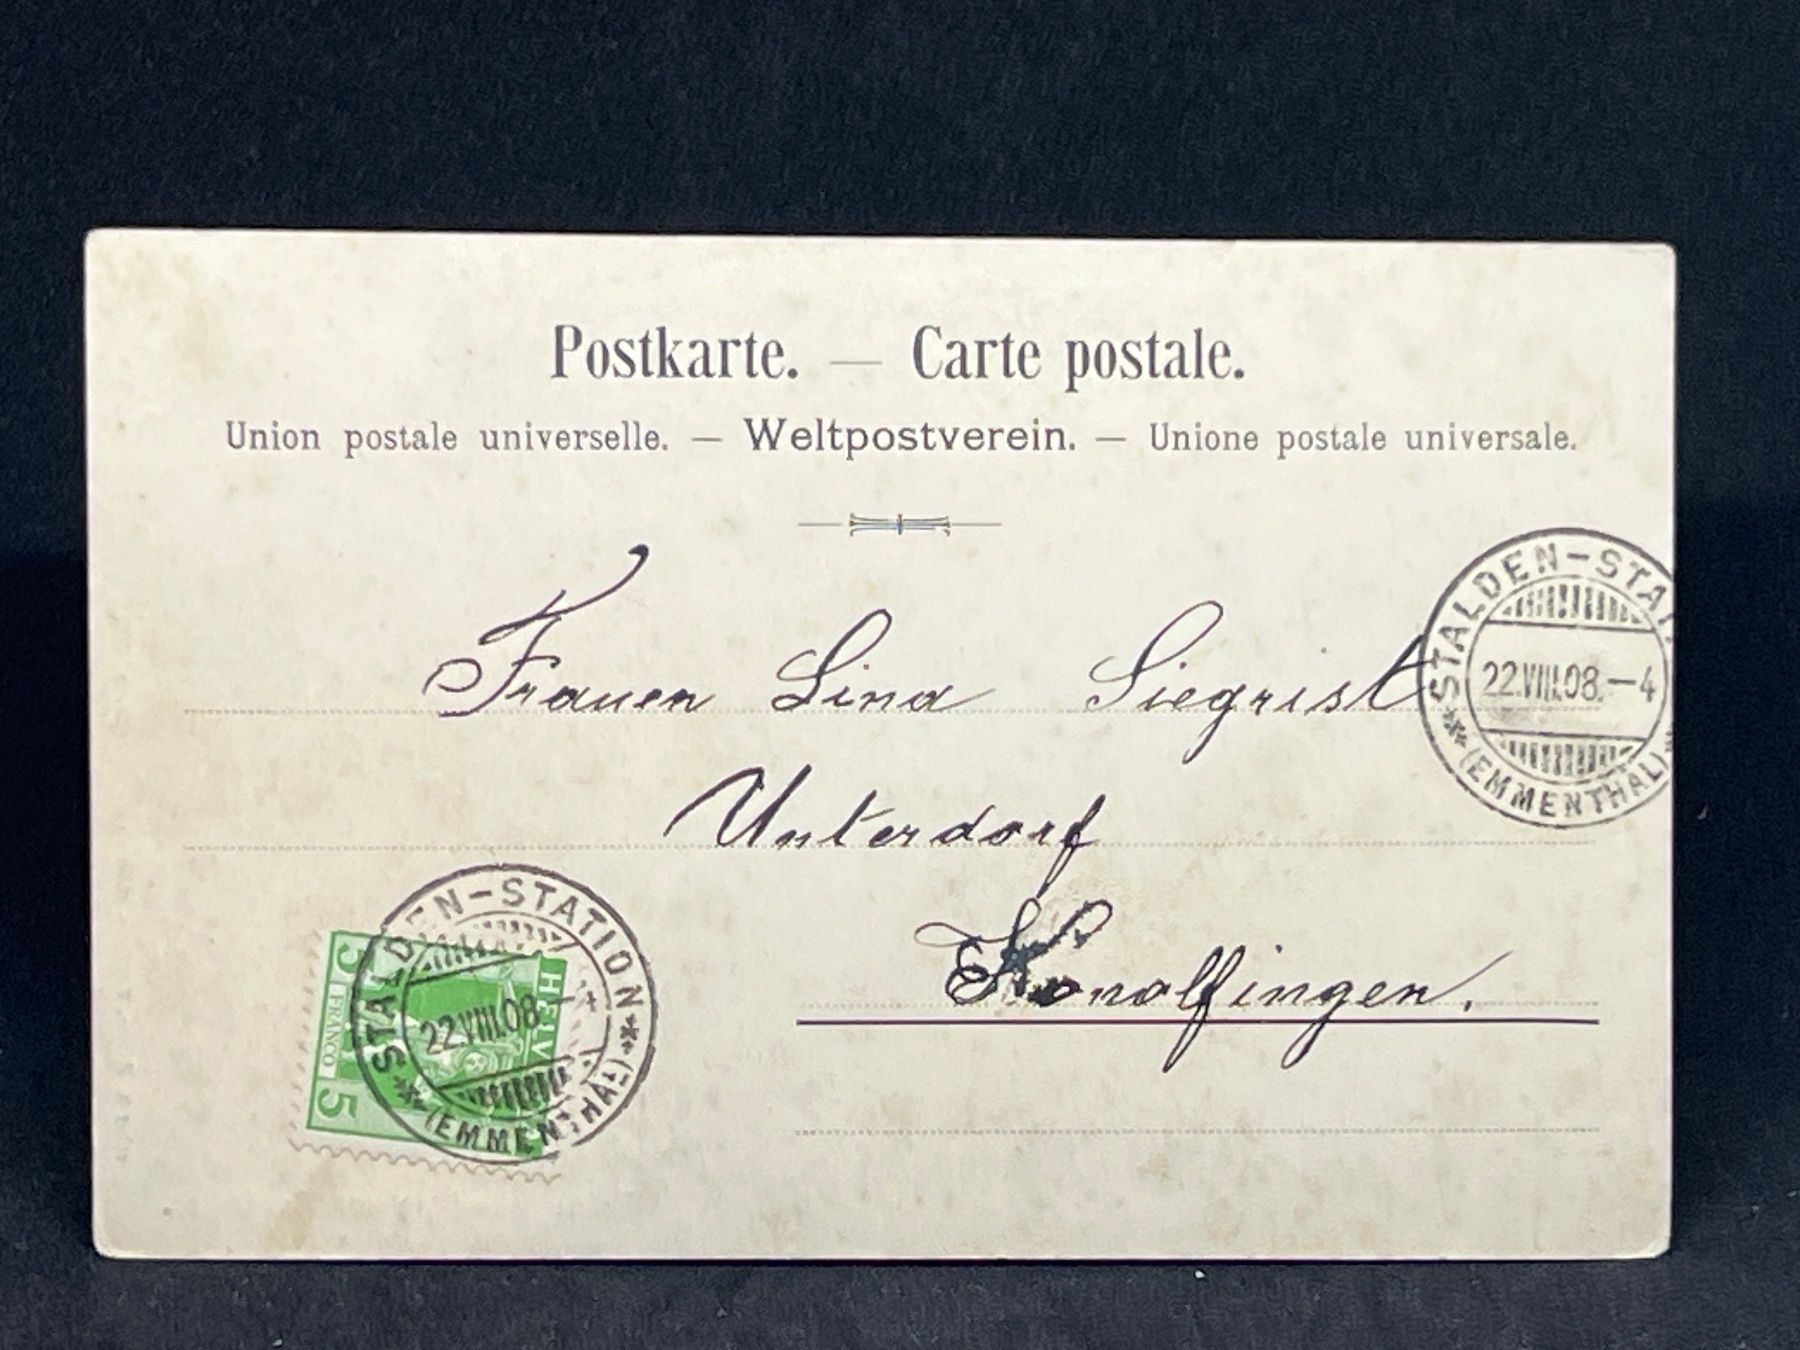 Postkarte. — Carte postale.
Union postale universelle. — Weltpostverein. — Unione postale universale.
Frauen Lina Siegrist
Unterdorf
Konolfingen.
STALDEN-STAT
22.VIII.08.-4
(EMMENTHAL)
STALDEN-STATION
22.VIII.08-4
(EMMENTHAL)
HELV
5 FRANCO 5